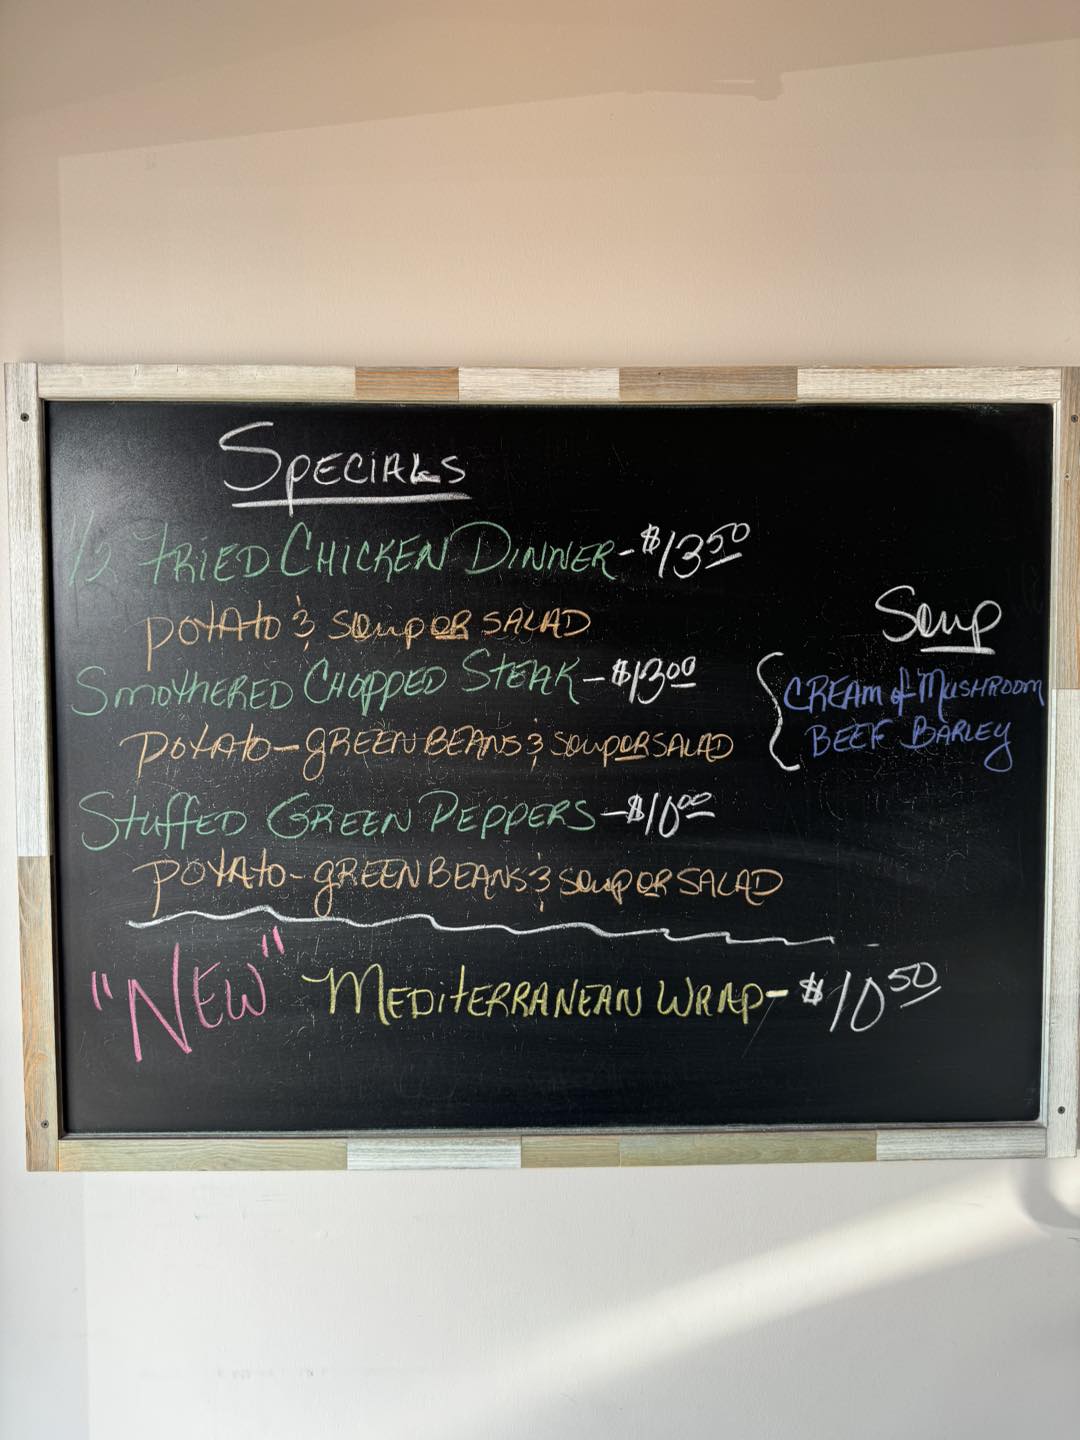 Specials
1/2 Fried Chicken Dinner - $13.50
Potato & Soup or Salad
Smothered Chopped Steak - $13.00
Potato - Green Beans & Soup or Salad
Stuffed Green Peppers - $10.00
Potato - Green Beans & Soup or Salad
"New" Mediterranean Wrap - $10.50
Soup
Cream of Mushroom
Beef Barley